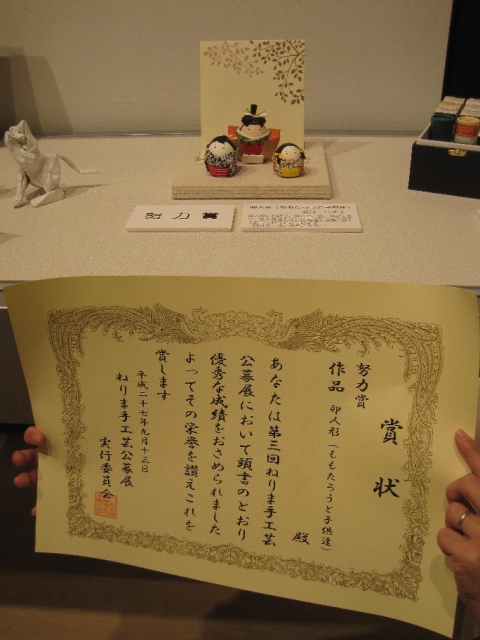 努力賞
賞状
努力賞
作品 卵人形（ももたろうと子供達）
殿
あなたは第三回ねりま手工芸
公募展において頭書のとおり
優秀な成績をおさめられました
よってその栄誉を讃えこれを
賞します
平成二十七年九月十三日
ねりま手工芸公募展
実行委員会